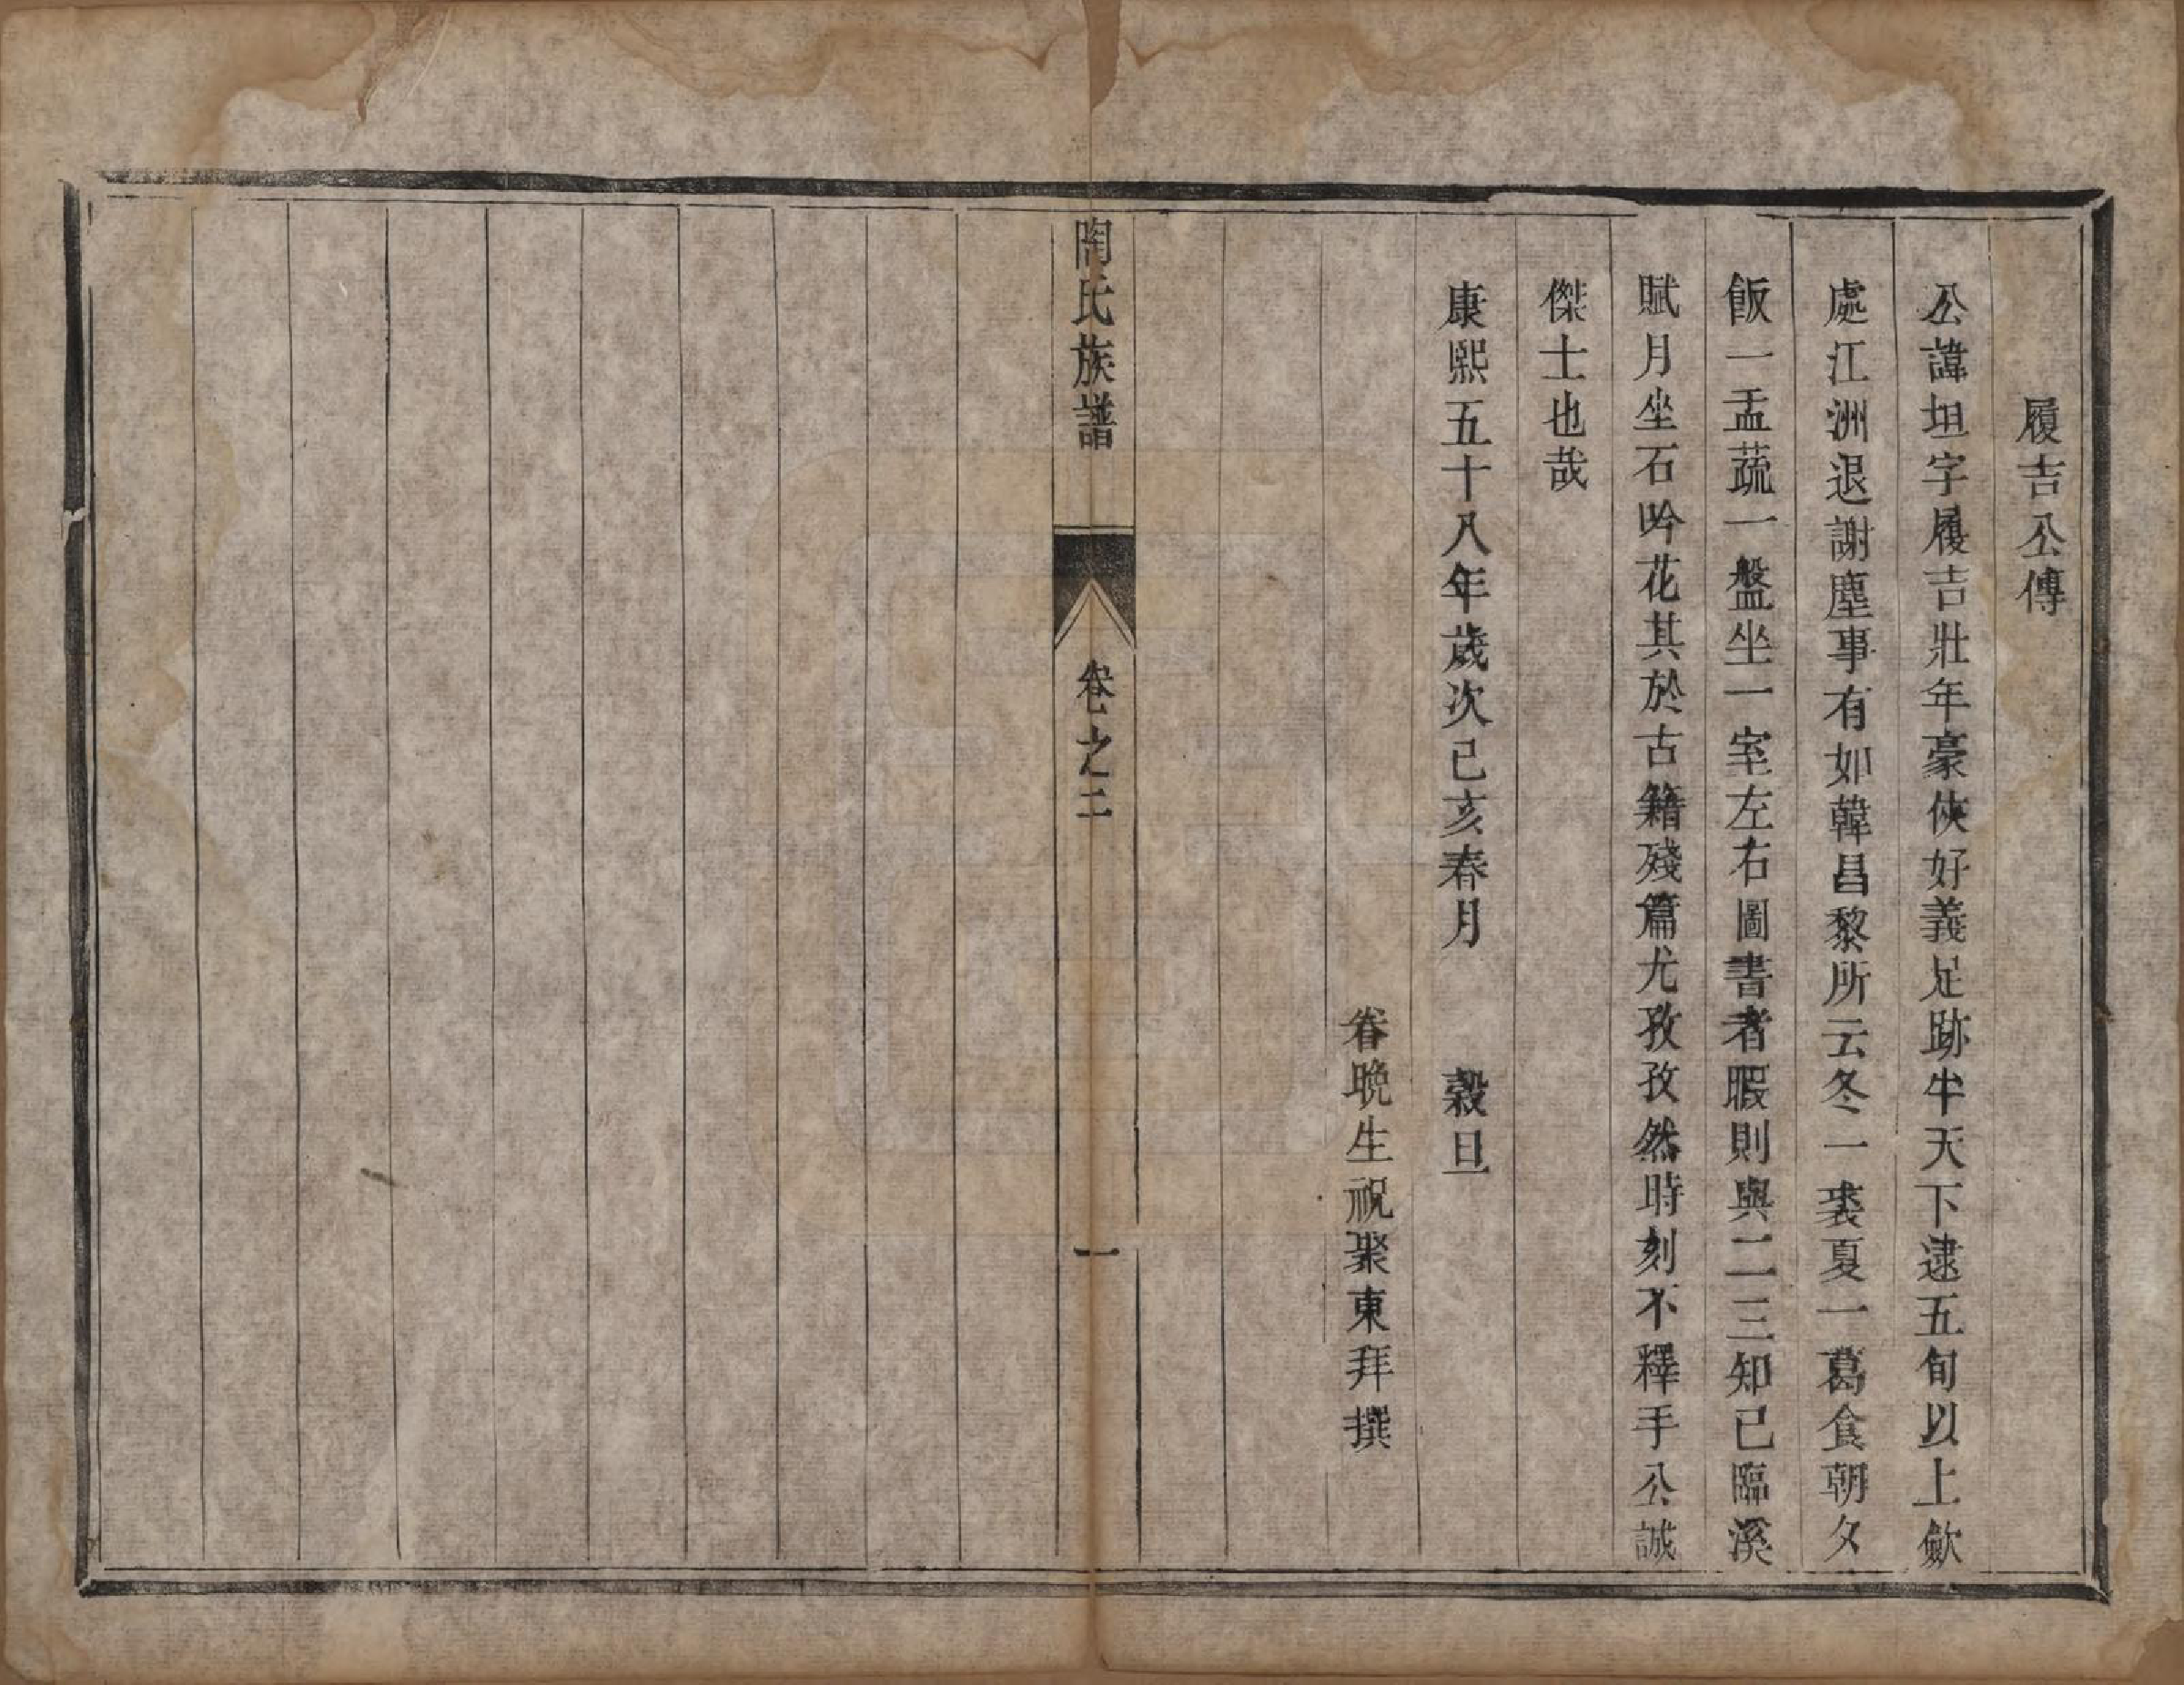 履吉公傳
公諱坦字履吉壯年豪俠好義足跡半天下逮五旬以上歛
處江洲退謝塵事有如韓昌黎所云冬一裘夏一葛食朝夕
飯一盂蔬一盤坐一室左右圖書者暇則與二三知己臨溪
賦月坐石吟花其於古籍殘篇尤孜孜然時刻不釋手公誠
傑士也哉
康熙五十八年歲次己亥春月 穀旦
眷晚生祝聚東拜撰
陶氏族譜 卷之二 一